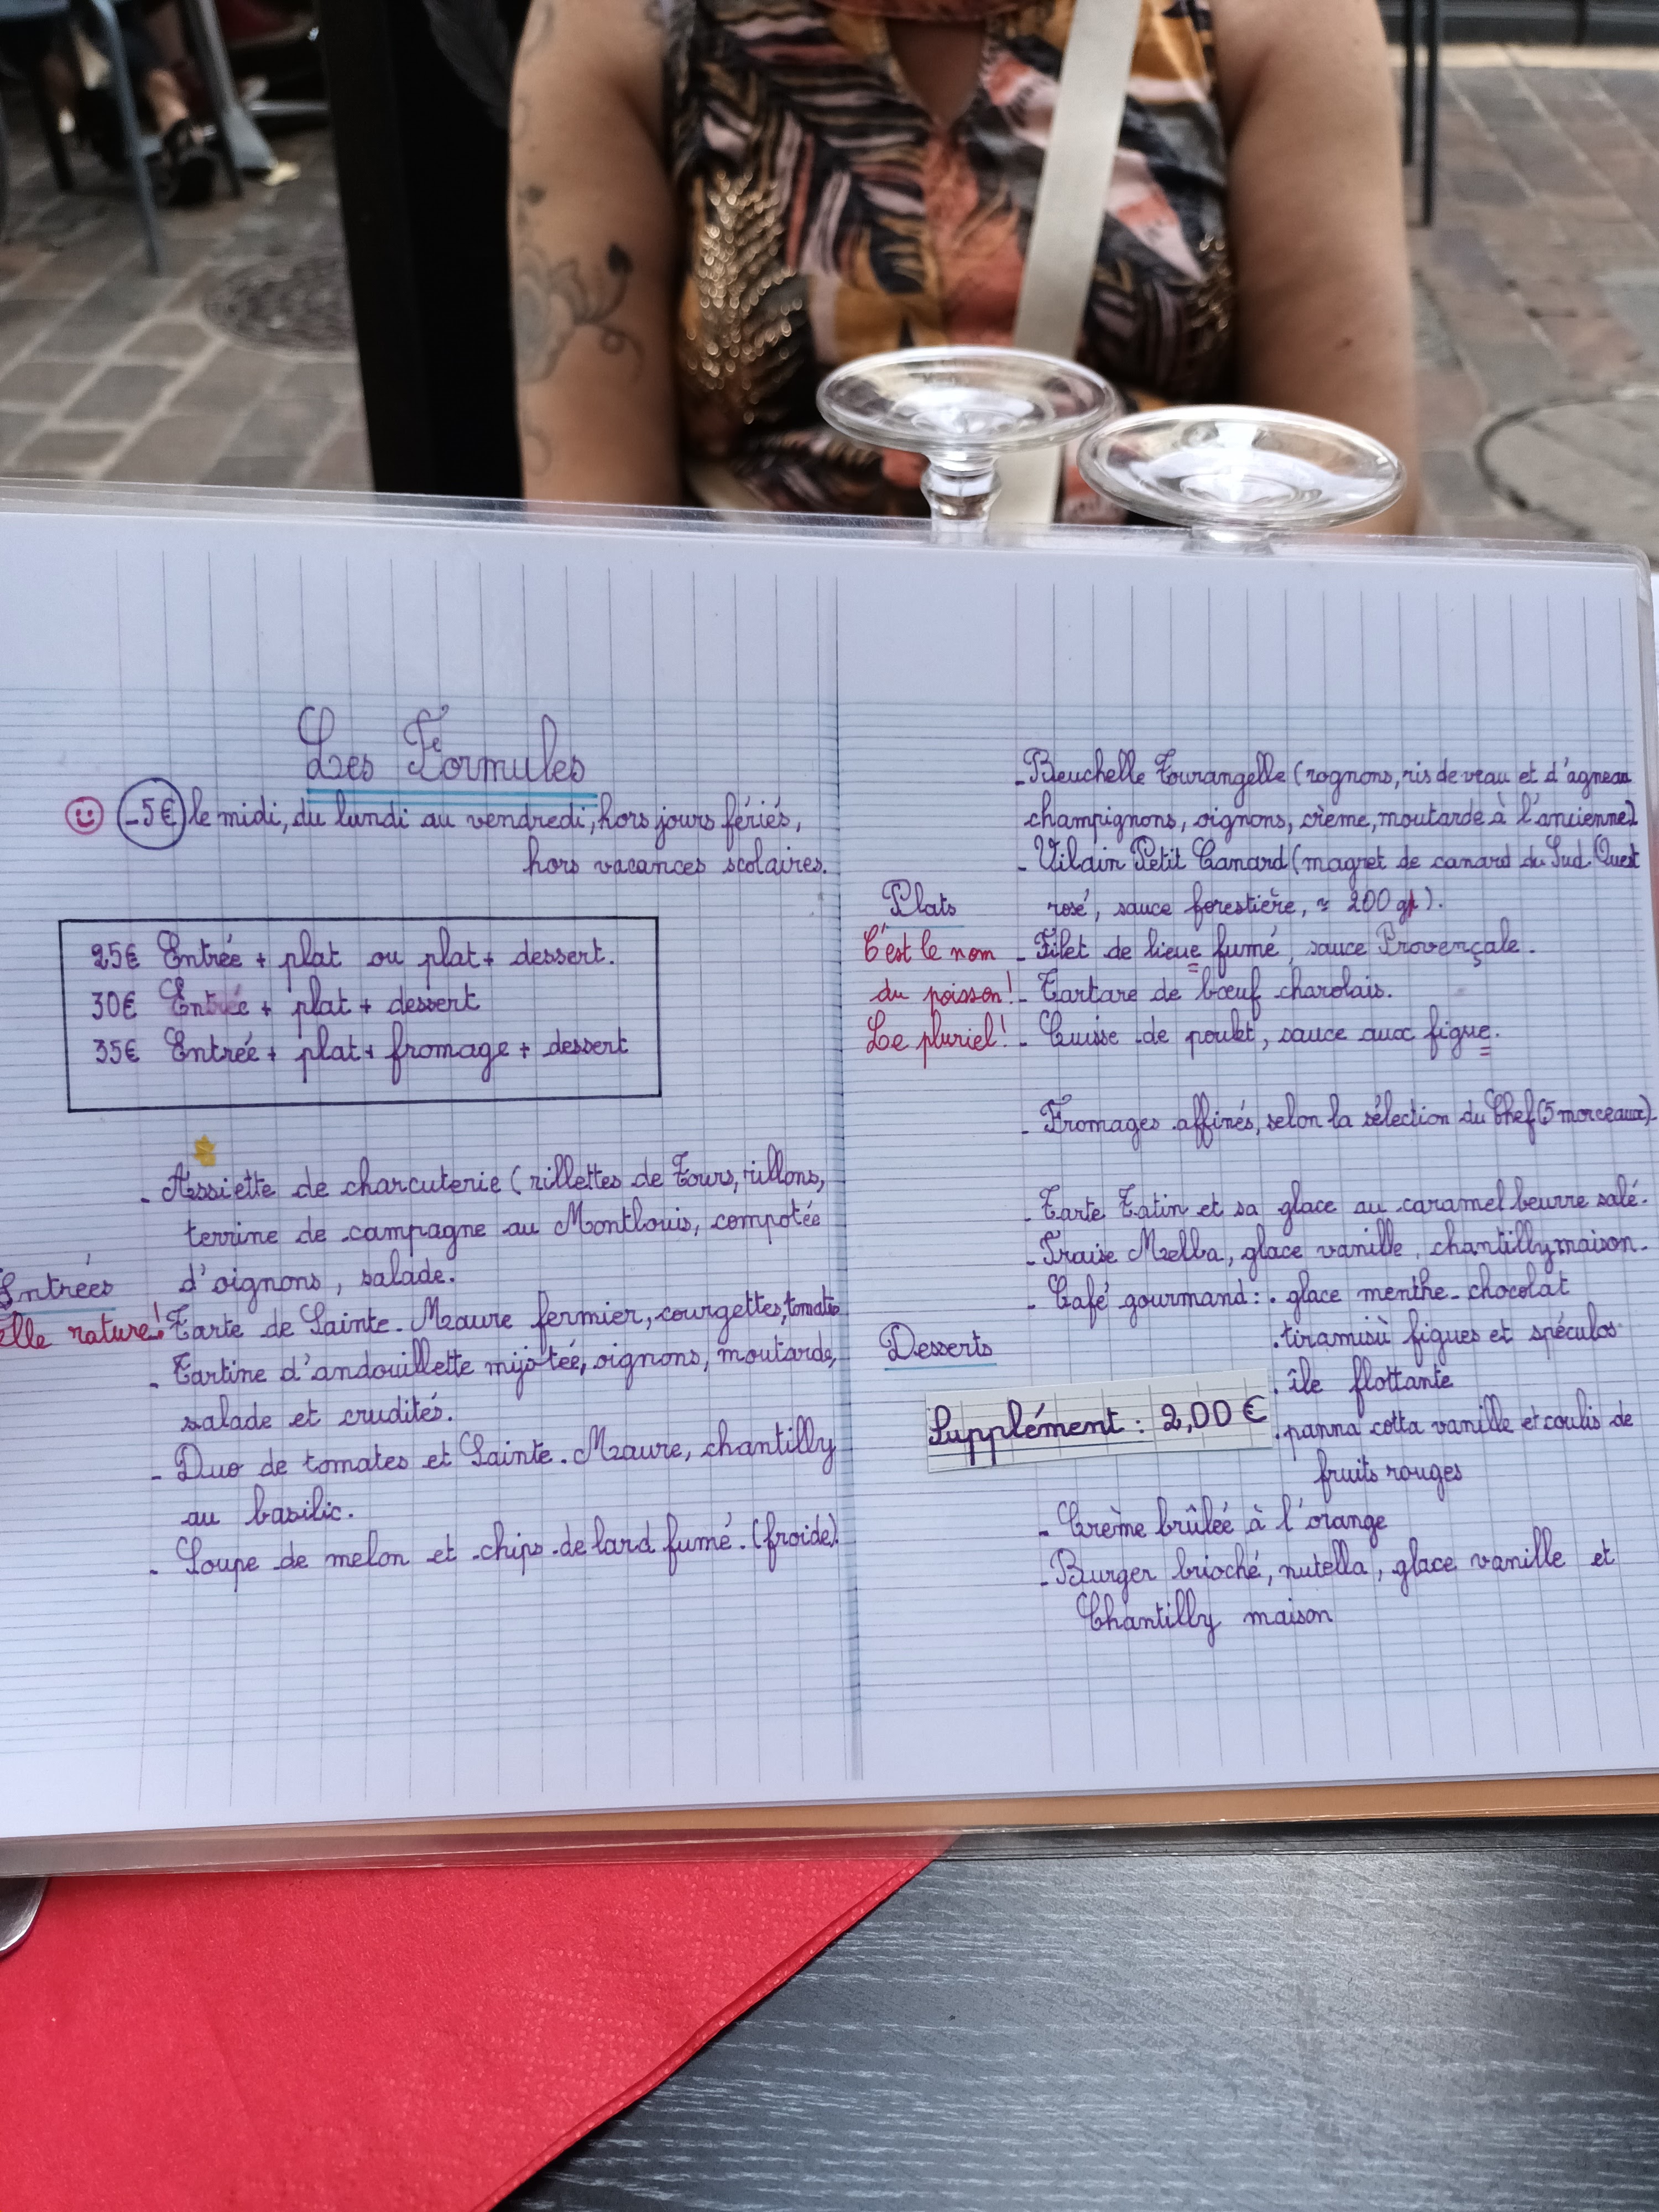 Les Formules
-5€ le midi, du lundi au vendredi, hors jours fériés,
hors vacances scolaires.
25€ Entrée + plat ou plat + dessert.
30€ Entrée + plat + dessert
35€ Entrée + plat + fromage + dessert
- Assiette de charcuterie (rillettes de Tours, rillons,
terrine de campagne au Montlouis, compotée
d'oignons, salade.
Entrées
Elle rature! Tarte de Sainte-Maure fermier, courgettes, tomates
- Tartine d'andouillette mijotée, oignons, moutarde,
salade et crudités.
- Duo de tomates et Sainte-Maure, chantilly
au basilic.
- Soupe de melon et chips de lard fumé. (froide).
- Beuchelle Tourangelle (rognons, ris de veau et d'agneau
champignons, oignons, crème, moutarde à l'ancienne)
- Vilain Petit Canard (magret de canard du Sud Ouest
Plats
rosé, sauce forestière, ≈ 200 g).
C'est le nom - Filet de lieue fumé, sauce Provençale.
du poisson! - Tartare de bœuf charolais.
Le pluriel! - Cuisse de poulet, sauce aux figue.
- Fromages affinés, selon la sélection du Chef (5 morceaux)
- Tarte Tatin et sa glace au caramel beurre salé.
- Fraise Melba, glace vanille, chantilly maison.
- Café gourmand : . glace menthe-chocolat
Desserts
. tiramisù figues et spéculos
. île flottante
Supplément : 2,00 €
. panna cotta vanille et coulis de
fruits rouges
- Crème brûlée à l'orange
- Burger brioché, nutella, glace vanille et
Chantilly maison